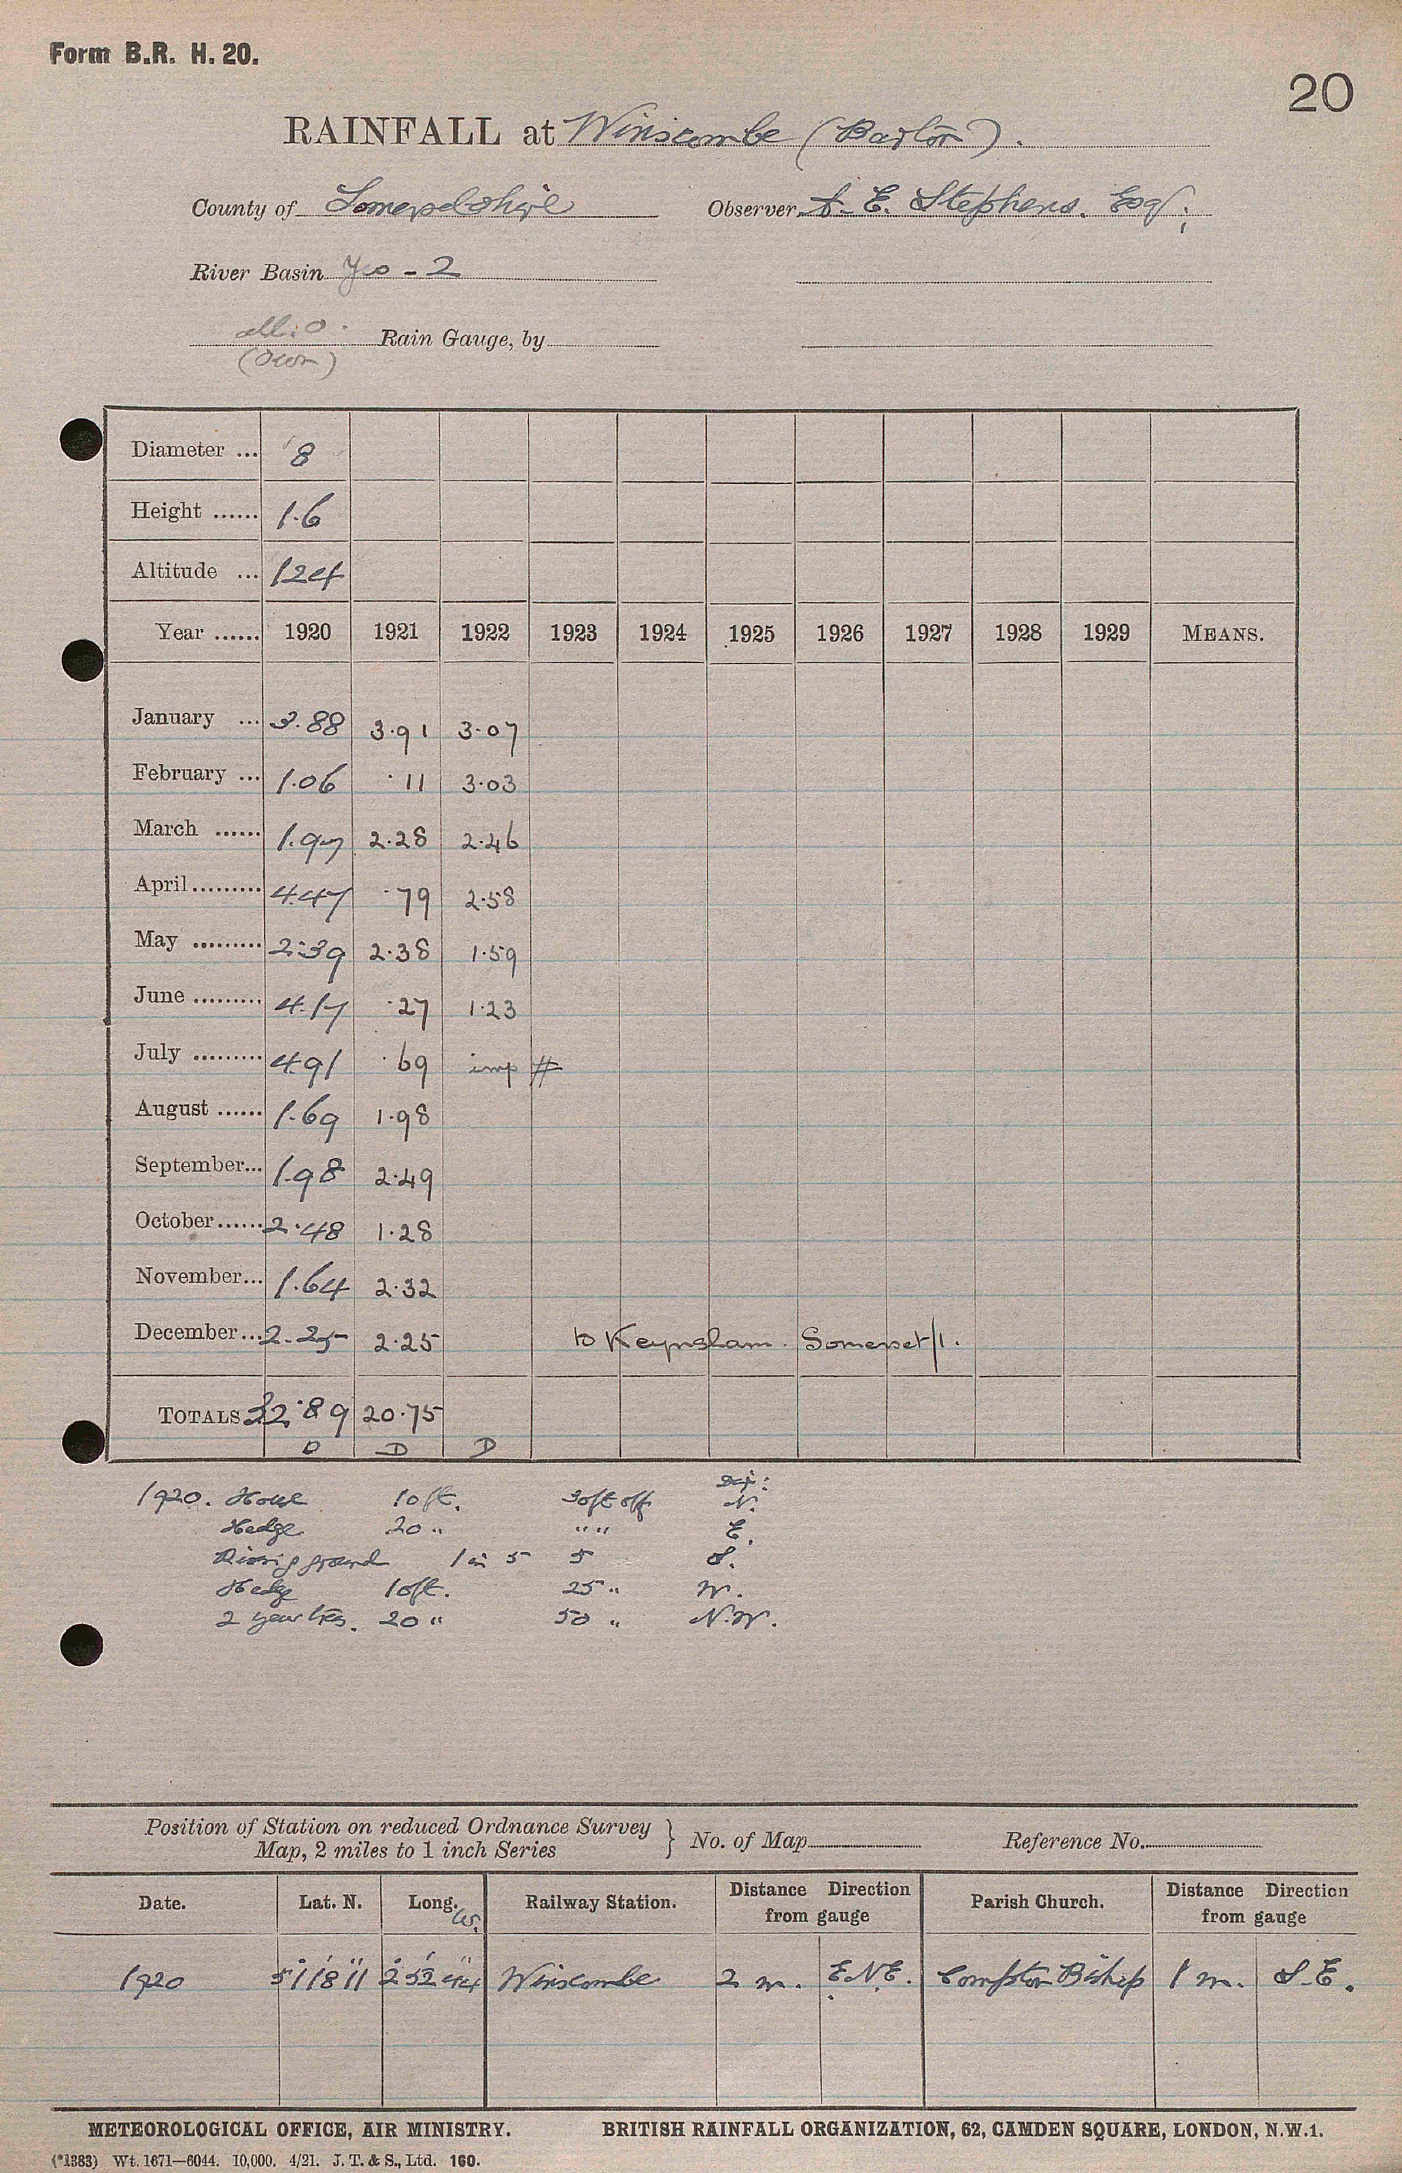 Form B.R. H. 20.
20
RAINFALL at Winscombe (Barton).
County of Somersetshire Observer A. E. Stephens. Esq;
River Basin Yeo - 2
M.O. Rain Gauge, by
(Own)
Diameter ... 8
Height ...... 1.6
Altitude ... 124
Year ...... 1920 1921 1922 1923 1924 1925 1926 1927 1928 1929 MEANS.
January ... 3.88 3.91 3.07
February ... 1.06 .11 3.03
March ...... 1.97 2.28 2.46
April ......... 4.47 .79 2.58
May ......... 2.39 2.38 1.59
June ......... 4.17 .27 1.23
July ......... 4.91 .69 imp #
August ...... 1.69 1.98
September... 1.98 2.49
October ...... 2.48 1.28
November... 1.64 2.32
December ... 2.25 2.25 to Keynsham. Somerset/1.
TOTALS 32.89 20.75
D D D
1920. House 10 ft. 30 ft off N.
Hedge 20 " " " E.
Rising ground 1 in 5 5 S.
Hedge 10 ft. 25 " W.
2 year trees. 20 " 50 " N.W.
Position of Station on reduced Ordnance Survey
Map, 2 miles to 1 inch Series } No. of Map Reference No.
Date. Lat. N. Long. W. Railway Station. Distance Direction from gauge Parish Church. Distance Direction from gauge
1920 51° 18' 11" 2° 52' 44" Winscombe 2 m. E.N.E. Compton Bishop 1 m. S.E.
METEOROLOGICAL OFFICE, AIR MINISTRY. BRITISH RAINFALL ORGANIZATION, 62, CAMDEN SQUARE, LONDON, N.W.1.
(*1383) Wt. 1671—6044. 10,000. 4/21. J. T. & S., Ltd. 160.